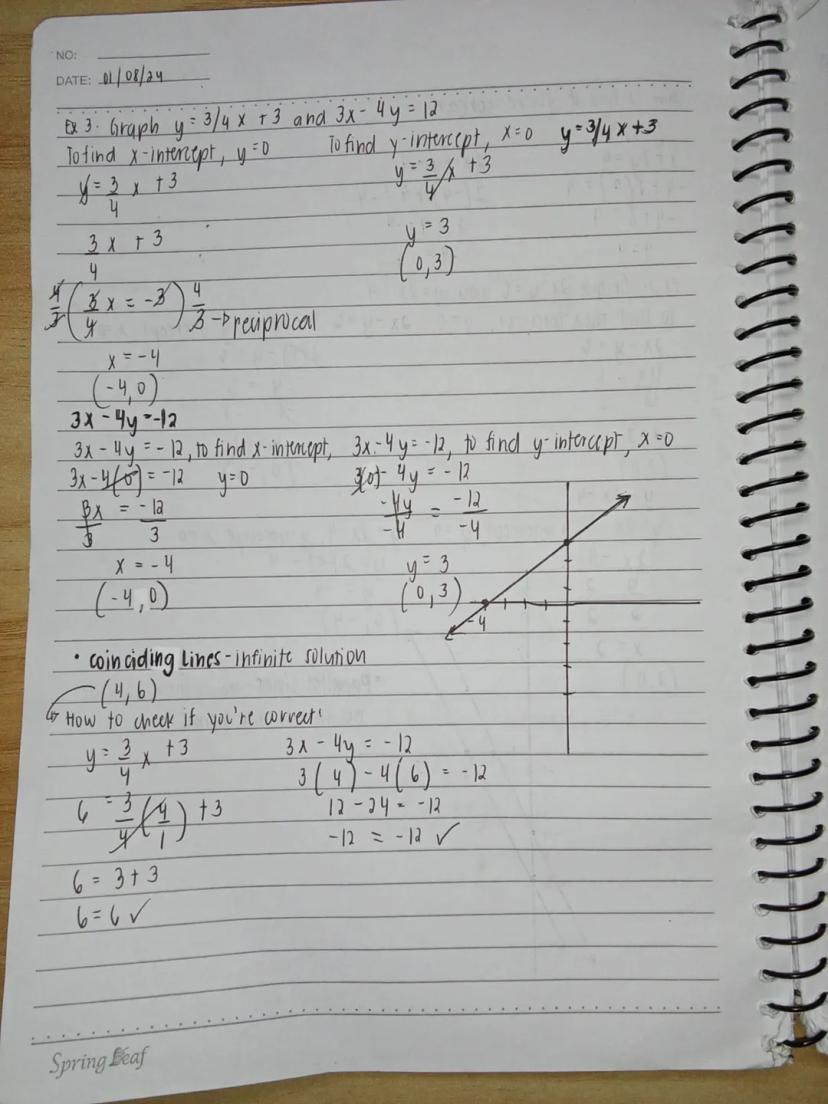 NO:
DATE: 01/08/24
Ex 3. Graph y = 3/4 x + 3 and 3x - 4y = 12
To find x-intercept, y=0 To find y-intercept, x=0 y = 3/4 x + 3
y = 3/4 x + 3 y = 3/4 x + 3
3/4 x + 3 y = 3
(0,3)
4/3 (3/4 x = -3) 4/3 → reciprocal
x = -4
(-4,0)
3x - 4y = -12
3x - 4y = -12, to find x-intercept, 3x - 4y = -12, to find y-intercept, x=0
3x - 4(0) = -12 y=0 3(0) - 4y = -12
3x/3 = -12/3 -4y/-4 = -12/-4
x = -4 y = 3
(-4,0) (0,3)
-4
• coinciding lines - infinite solution
(4,6)
How to check if you're correct!
y = 3/4 x + 3 3x - 4y = -12
3(4) - 4(6) = -12
6 = 3/4 (4/1) + 3 12 - 24 = -12
-12 = -12 ✓
6 = 3 + 3
6 = 6 ✓
Spring Leaf